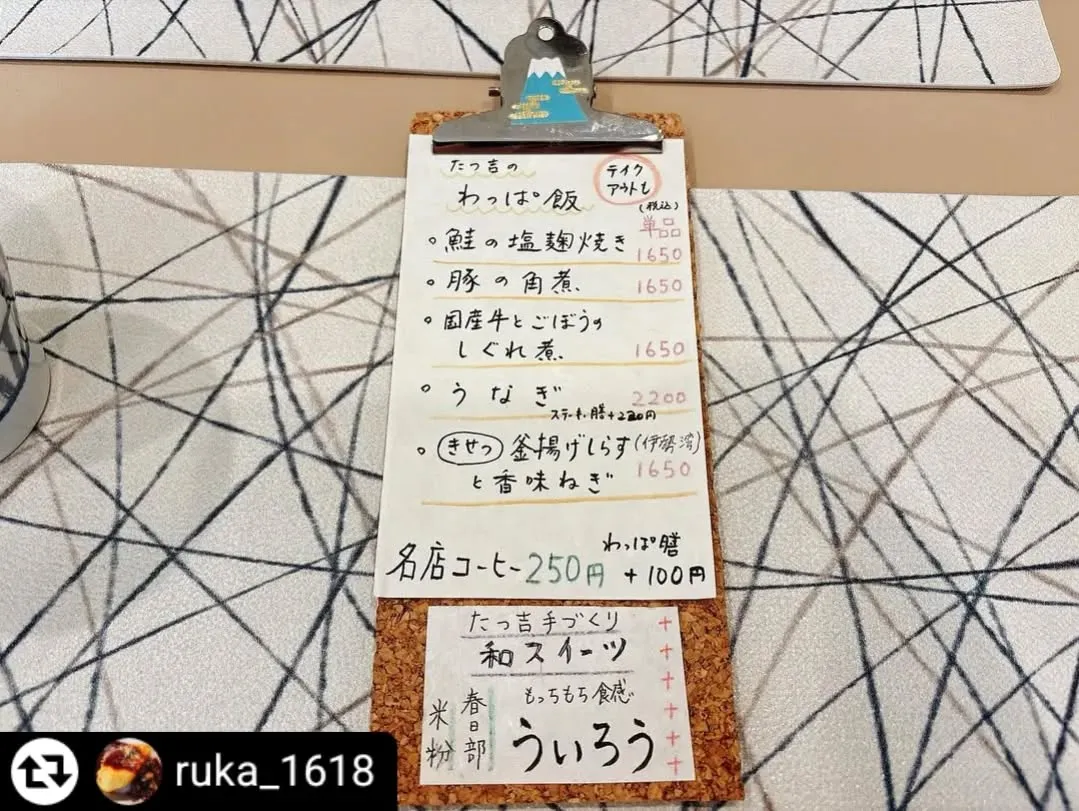 たつ吉の
テイク
アウトも
わっぱ飯
(税込)
単品
。鮭の塩麹焼き 1650
。豚の角煮 1650
。国産牛とごぼうの
しぐれ煮 1650
。うなぎ 2200
。きせつ 釜揚げしらす(伊勢湾)
と香味ねぎ 1650
わっぱ膳
名店コーヒー250円 +100円
たつ吉手づくり
和スイーツ
もっちもち食感
春日部
米粉
ういろう
ruka_1618